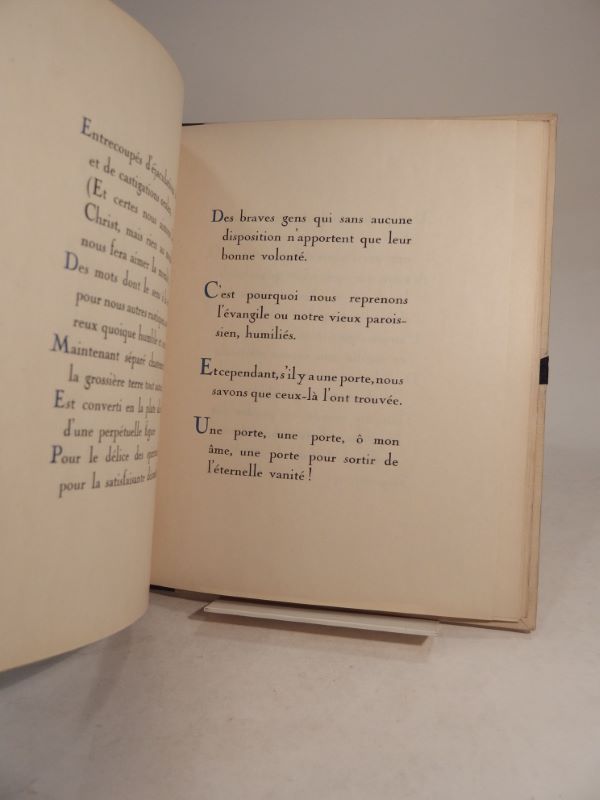 Entrecoupés
et de castigations
(Et certes nous
Christ, mais rien au
nous fera aimer la
Des mots dont le sens
pour nous autres
reux quoique humble et
Maintenant séparé
la grossière terre tout
Est converti en la
d'une perpétuelle
Pour le délice des
pour la satisfaisante
Des braves gens qui sans aucune
disposition n'apportent que leur
bonne volonté.
C'est pourquoi nous reprenons
l'évangile ou notre vieux parois-
sien, humiliés.
Et cependant, s'il y a une porte, nous
savons que ceux-là l'ont trouvée.
Une porte, une porte, ô mon
âme, une porte pour sortir de
l'éternelle vanité !